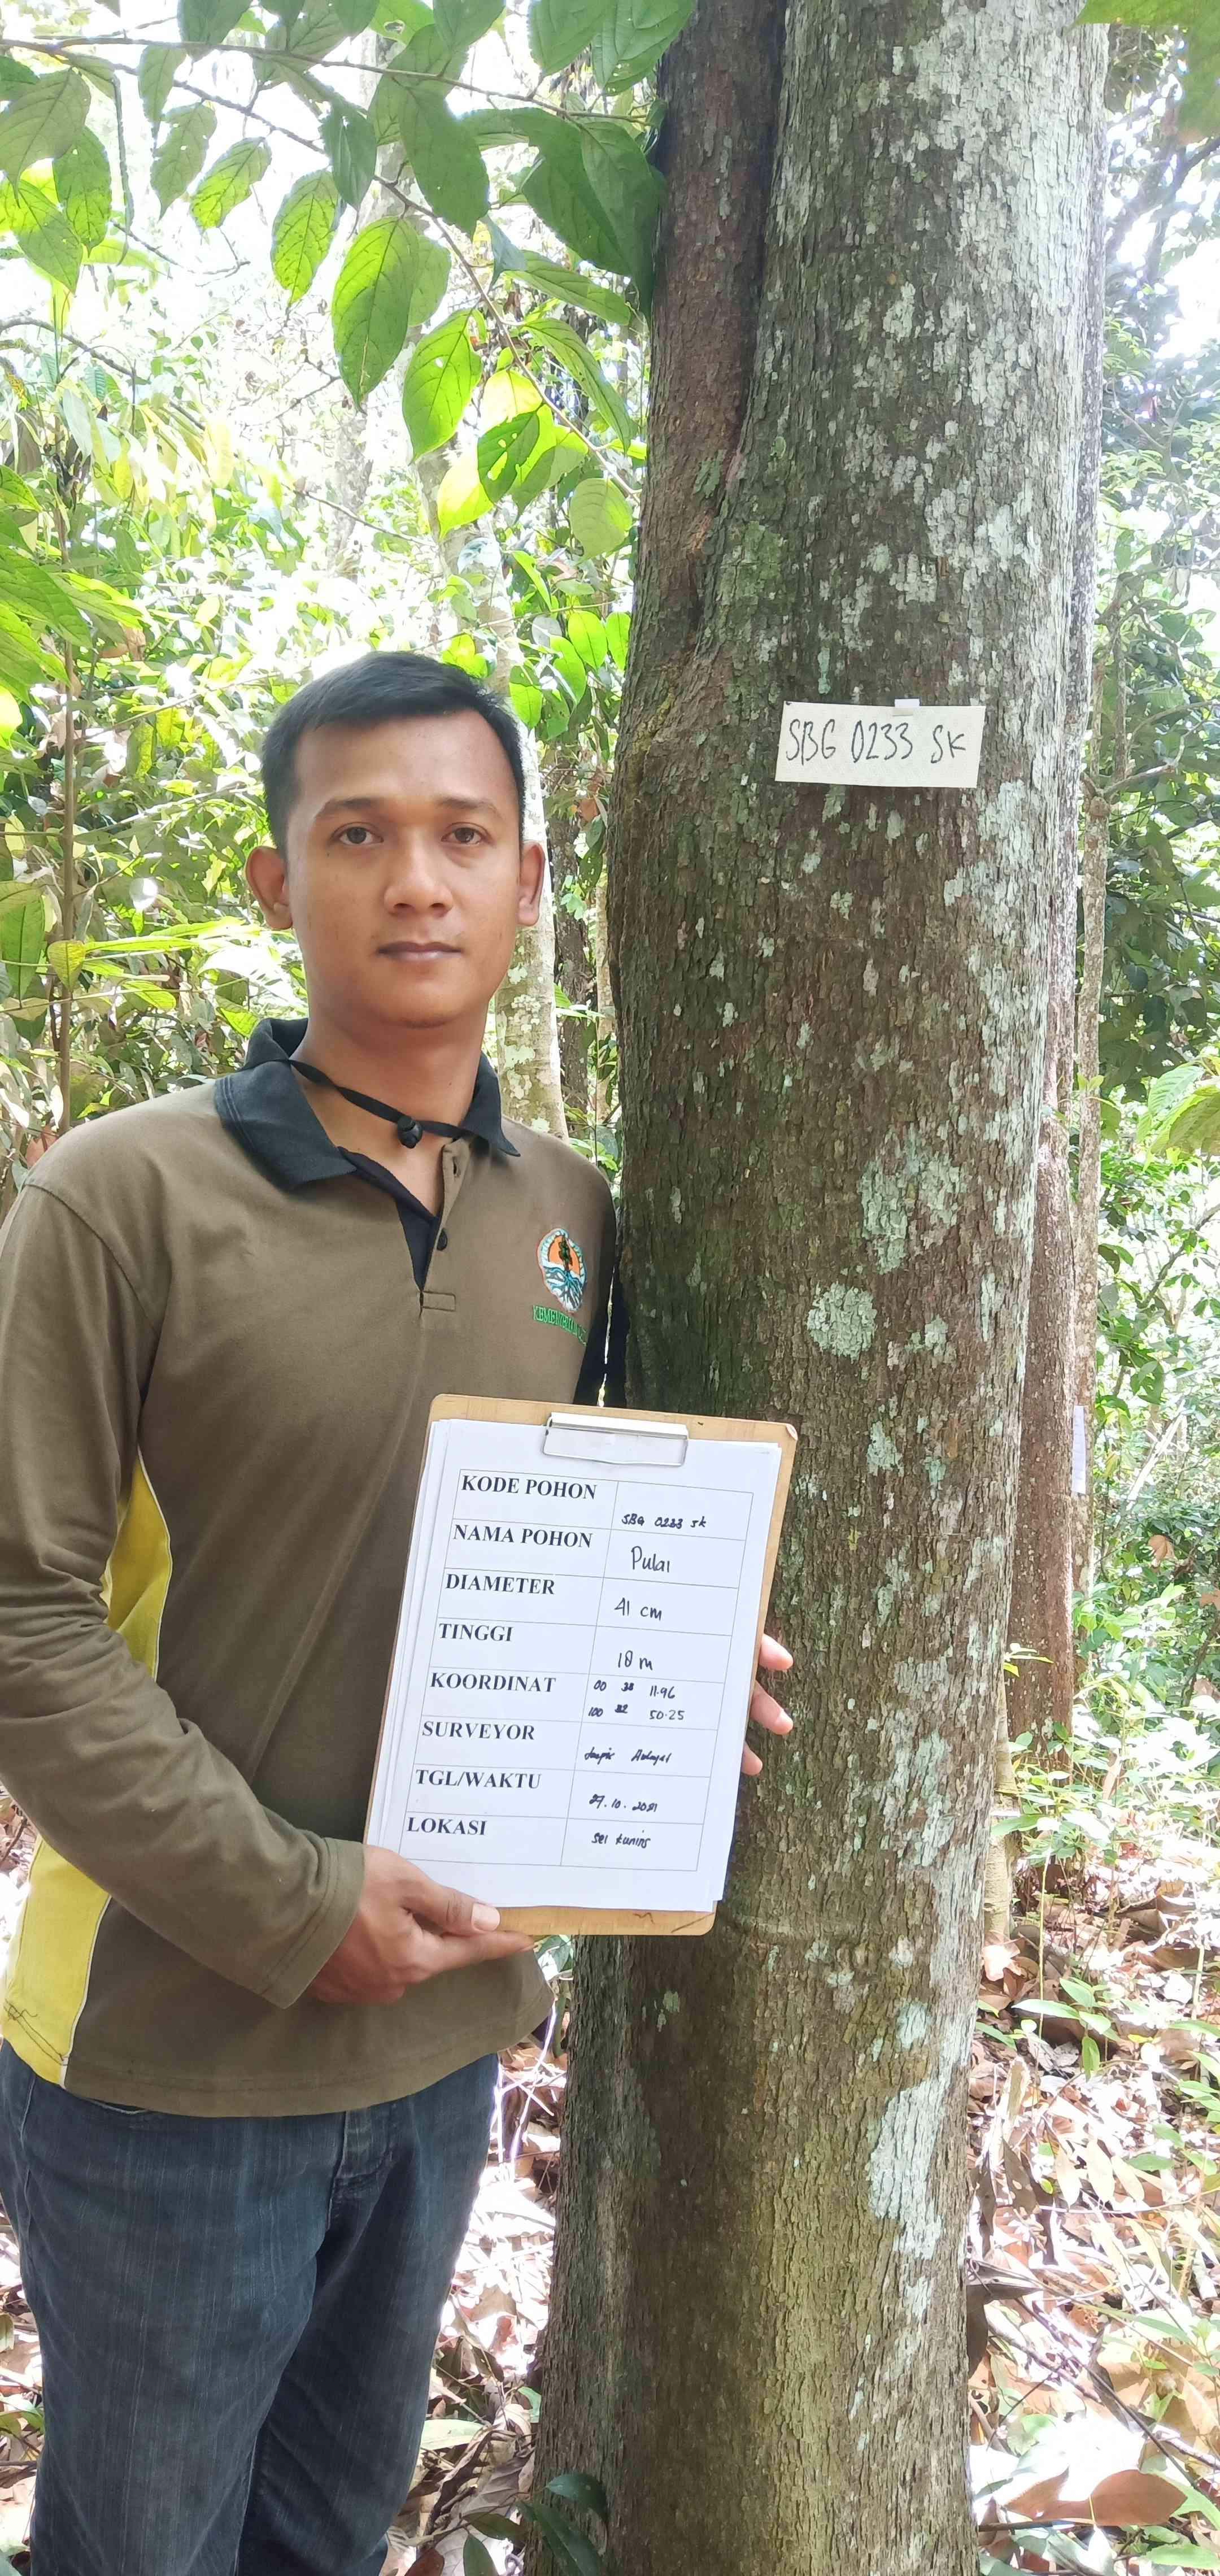 SBG 0233 SK
KODE POHON SBG 0233 SK
NAMA POHON Pulai
DIAMETER 41 cm
TINGGI 18 m
KOORDINAT 00 38 11.96
100 32 50.25
SURVEYOR
TGL/WAKTU 27.10.2021
LOKASI Sei